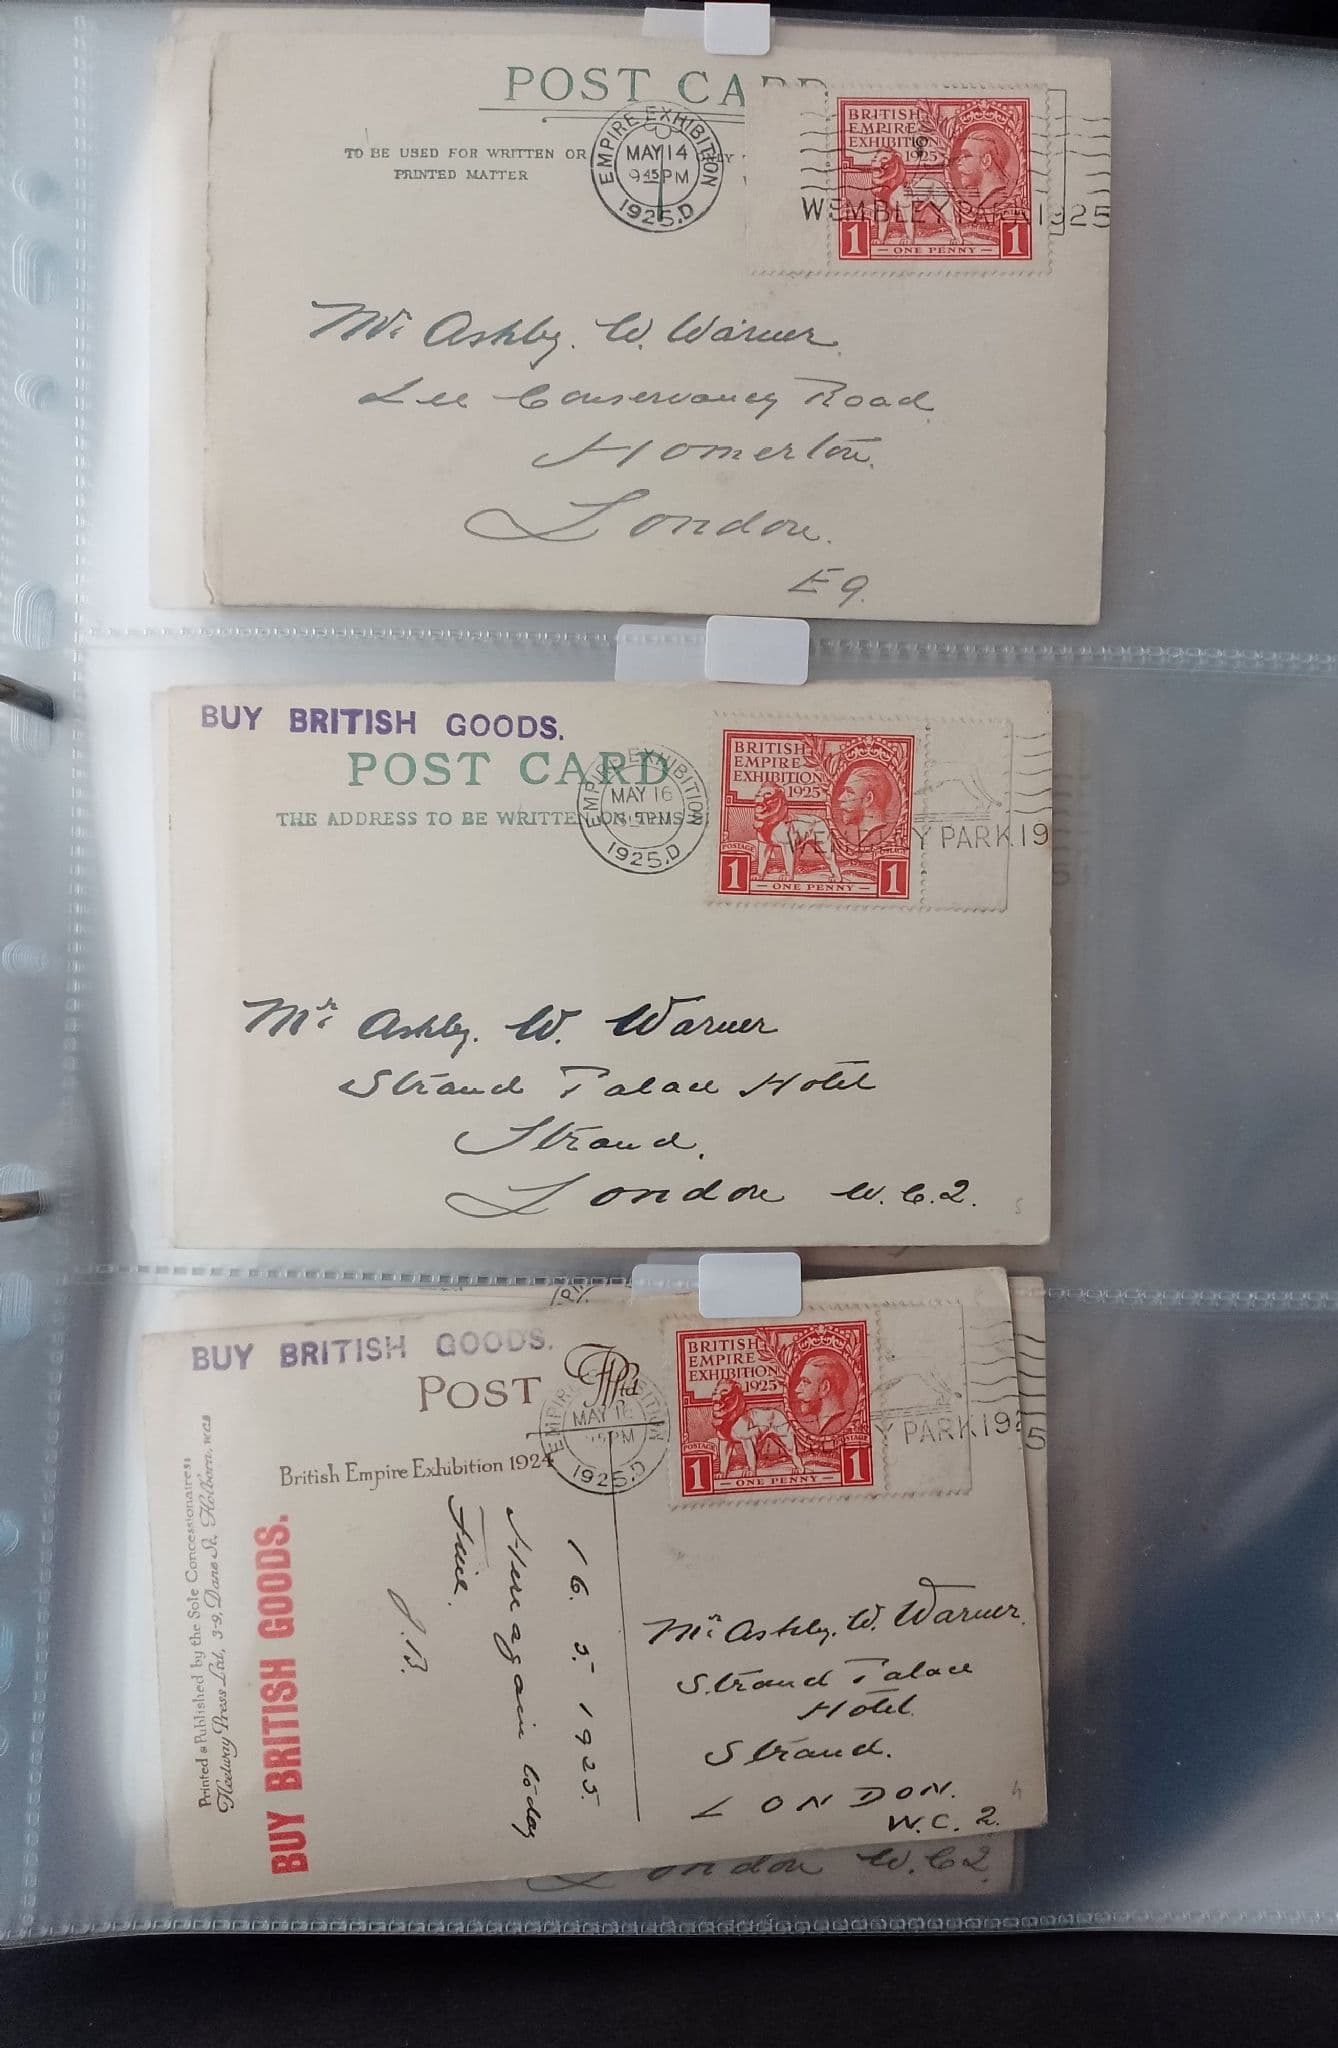 POST CARD
TO BE USED FOR WRITTEN OR
PRINTED MATTER
EMPIRE EXHIBITION
MAY 14
9 45 PM
1925.D
BRITISH
EMPIRE
EXHIBITION
1925
1 ONE PENNY 1
WEMBLEY PARK 1925
Mr Ashby. W. Warner.
Lee Conservancy Road
Homerton.
London.
E9.
BUY BRITISH GOODS.
POST CARD
THE ADDRESS TO BE WRITTEN ON THIS
EMPIRE EXHIBITION
MAY 16
5 PM
1925.D
BRITISH
EMPIRE
EXHIBITION
1925
POSTAGE
1 ONE PENNY 1
WEMBLEY PARK.19
Mr Ashby. W. Warner
Strand Palace Hotel
Strand.
London W.C.2.
5
BUY BRITISH GOODS.
POST
British Empire Exhibition 1924
EMPIRE EXHIBITION
MAY 16
5 PM
1925.D
BRITISH
EMPIRE
EXHIBITION
1925
POSTAGE
1 ONE PENNY 1
PARK.192
5
Printed & Published by the Sole Concessionaires
Fleetway Press Ltd, 3-9, Dane St. Holborn, WC2
BUY BRITISH GOODS.
16. 5. 1925.
Here again today
J.B.
Mr Ashby. W. Warner.
Strand Palace
Hotel.
Strand.
LONDON.
W.C. 2.
4
London W.C.2.